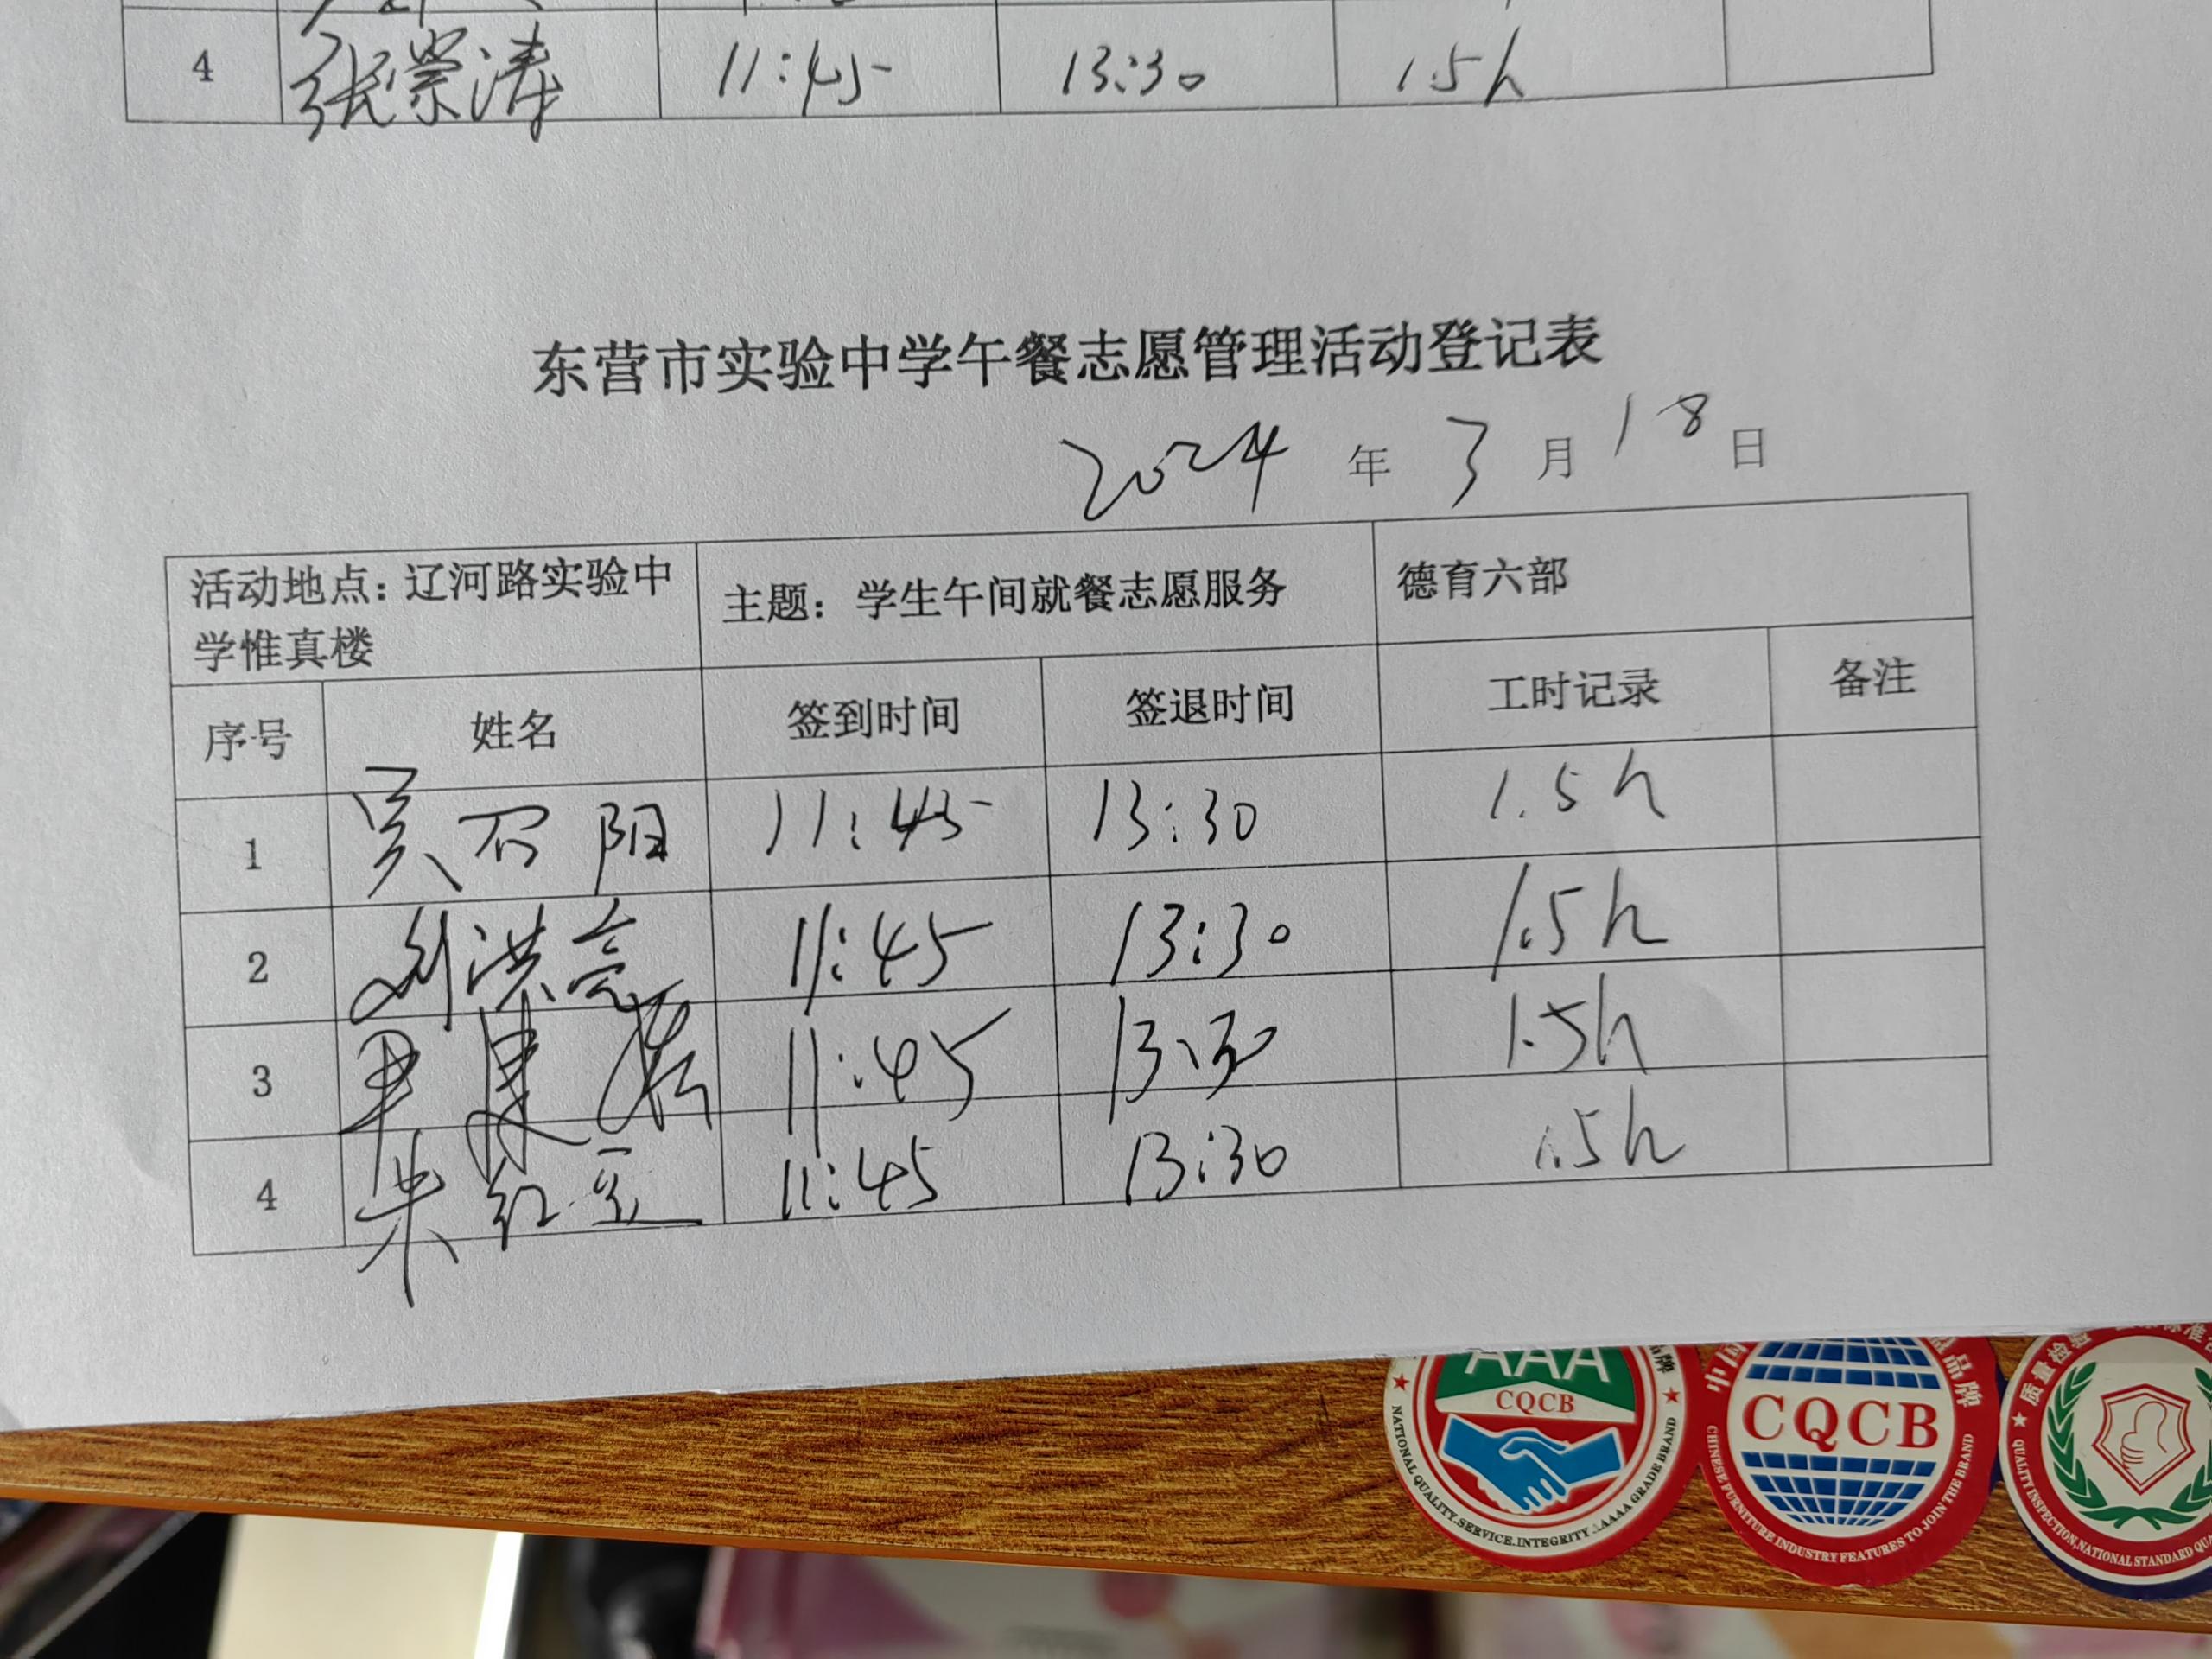 4 张崇涛 11:45 13:30 1.5h
东营市实验中学午餐志愿管理活动登记表
2024 年 3 月 18 日
活动地点：辽河路实验中 主题：学生午间就餐志愿服务 德育六部
学惟真楼
序号 姓名 签到时间 签退时间 工时记录 备注
1 吴召阳 11:45 13:30 1.5h
2 刘洪亮 11:45 13:30 1.5h
3 尹建 11:45 13:30 1.5h
4 朱红 11:45 13:30 1.5h
AAA
CQCB
NATIONAL QUALITY.SERVICE.INTEGRITY AAAA GRADE BRAND
CQCB
CHINESE FURNITURE INDUSTRY FEATURES TO JOIN THE BRAND
质量检
QUALITY INSPECTION,NATIONAL STANDARD